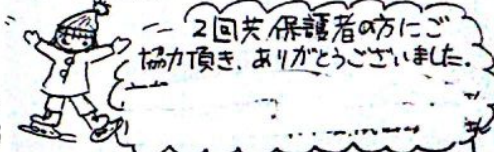 2回共、保護者の方にご
協力頂き、ありがとうございました。